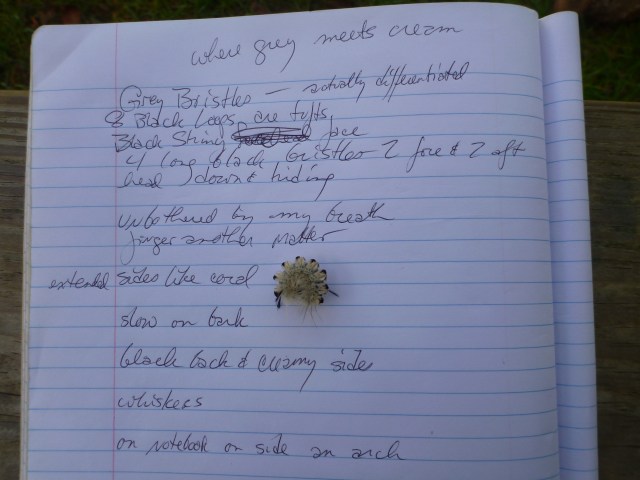 where grey meets cream
Grey Bristles — actually differentiated
8 Black Loops are tufts
Black Shiny face
4 long black bristles 2 fore & 2 aft
head down & hiding
unbothered by my breath
finger another matter
extended sides like cord
slow on bark
black back & creamy sides
whiskers
on notebook on side an arch